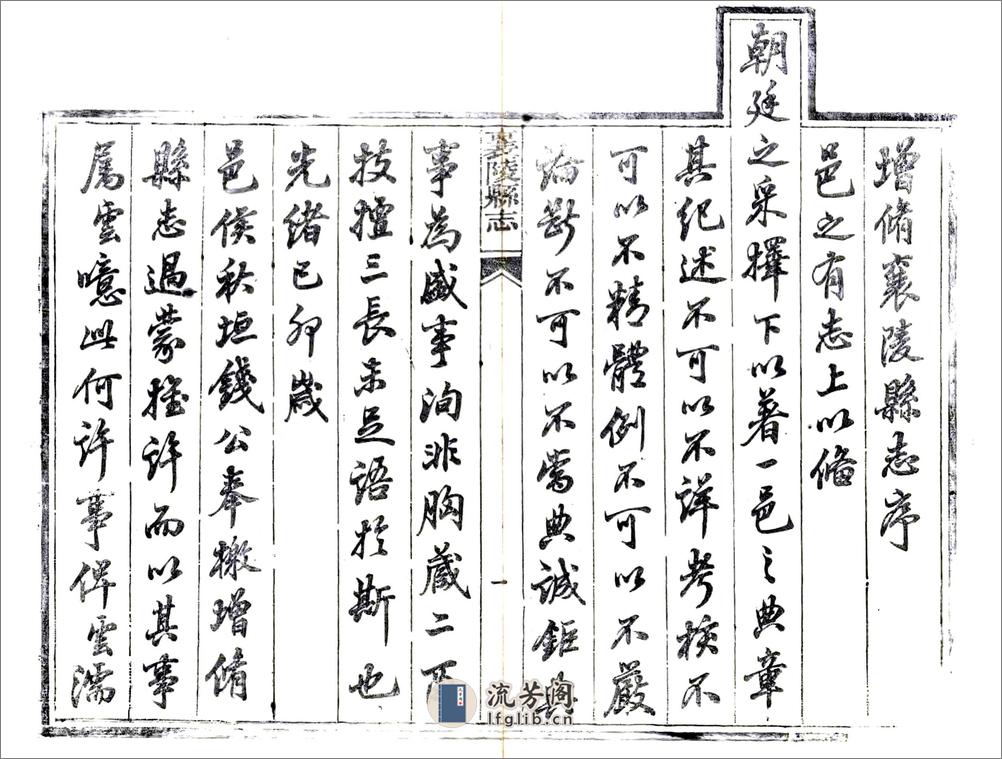 增脩襄陵縣志序
邑之有志上以俻
朝廷之采擇下以著一邑之典章
其紀述不可以不詳考核不
可以不精體例不可以不嚴
論斷不可以不當典誠鉅典
襄陵縣志
一
事為盛事洵非胸藏二酉
技擅三長未足語於斯也
光緒己卯歲
邑侯秋垣錢公奉檄增脩
縣志過蒙推許而以其事
屬雲噫此何許事俾雲濡
流芳阁
lfglib.cn